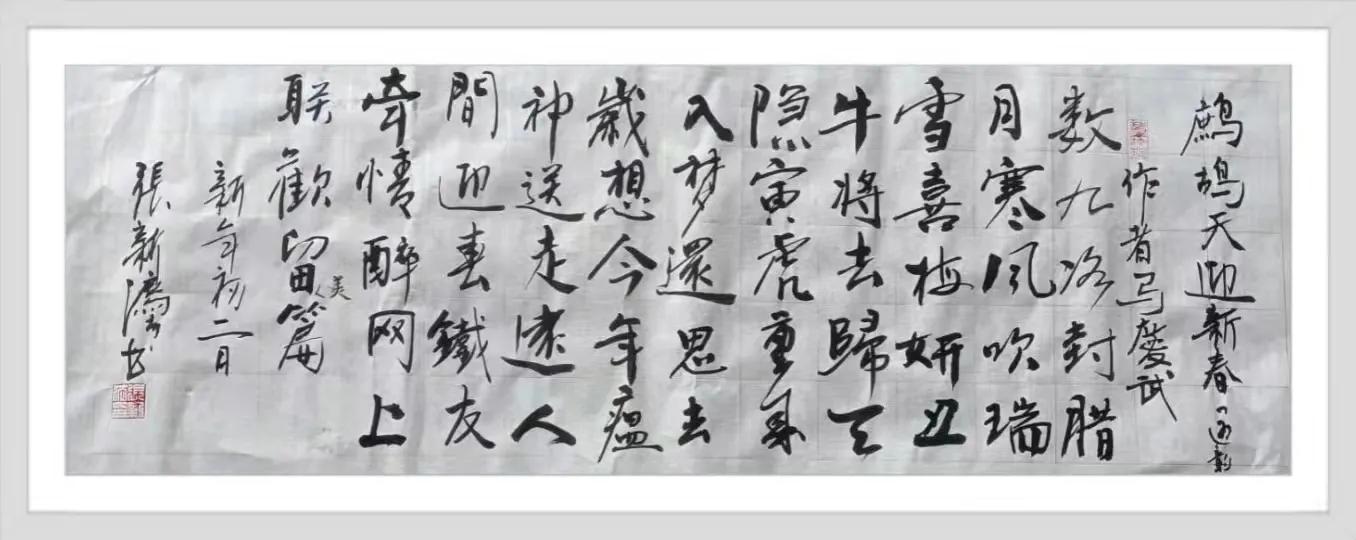 鹧鸪天迎新春（通韵
作者马慶武
数九冰封腊
月寒风吹瑞
雪喜梅妍丑
牛将去歸天
隐寅虎重来
入梦還思去
歲想今年瘟
神送走遠人
間迎春鐵友
牵情醉网上
联歡留美篇
新年初二日
張新书